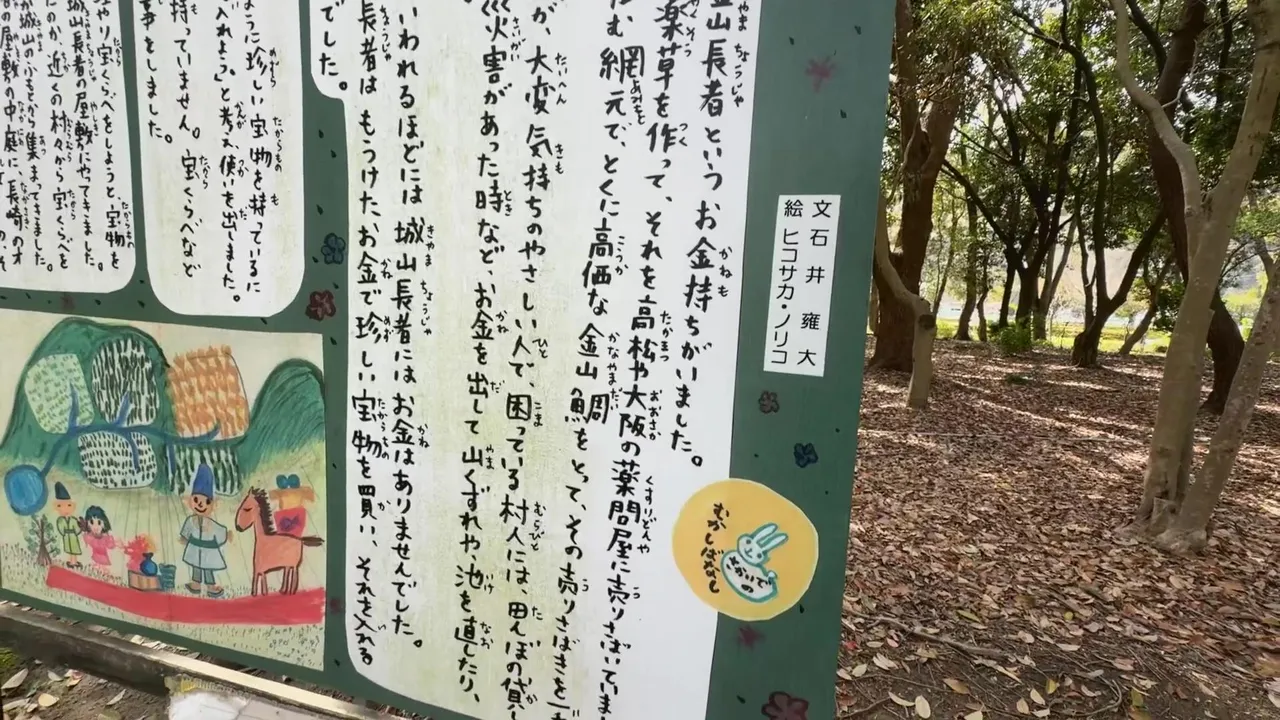 文 石井雍大
絵 ヒコサカ・ノリコ
むかしばなし
金山長者というお金持ちがいました。
薬草を作って、それを高松や大阪の薬問屋に売りさばいていま
む網元で、とくに高価な金山鯛をとって、その売りさばきを一
が、大変気持ちのやさしい人で、困っている村人には、田んぼの貸
災害があった時など、お金を出して山くずれや池を直したり、
いわれるほどには城山長者にはお金はありませんでした。
長者はもうけたお金で珍しい宝物を買い、それを入れる
でした。
ように珍しい宝物を持っているに
入れよう」と考え、使いを出しました。
持っていません。宝くらべなど
事をしました。
やり宝くらべをしようと、宝物を
城山長者の屋敷にやってきました。
たのか、近くの村々から宝くらべを
が城山のふもとから集まってきました。
の屋敷の中庭に、長崎のオ